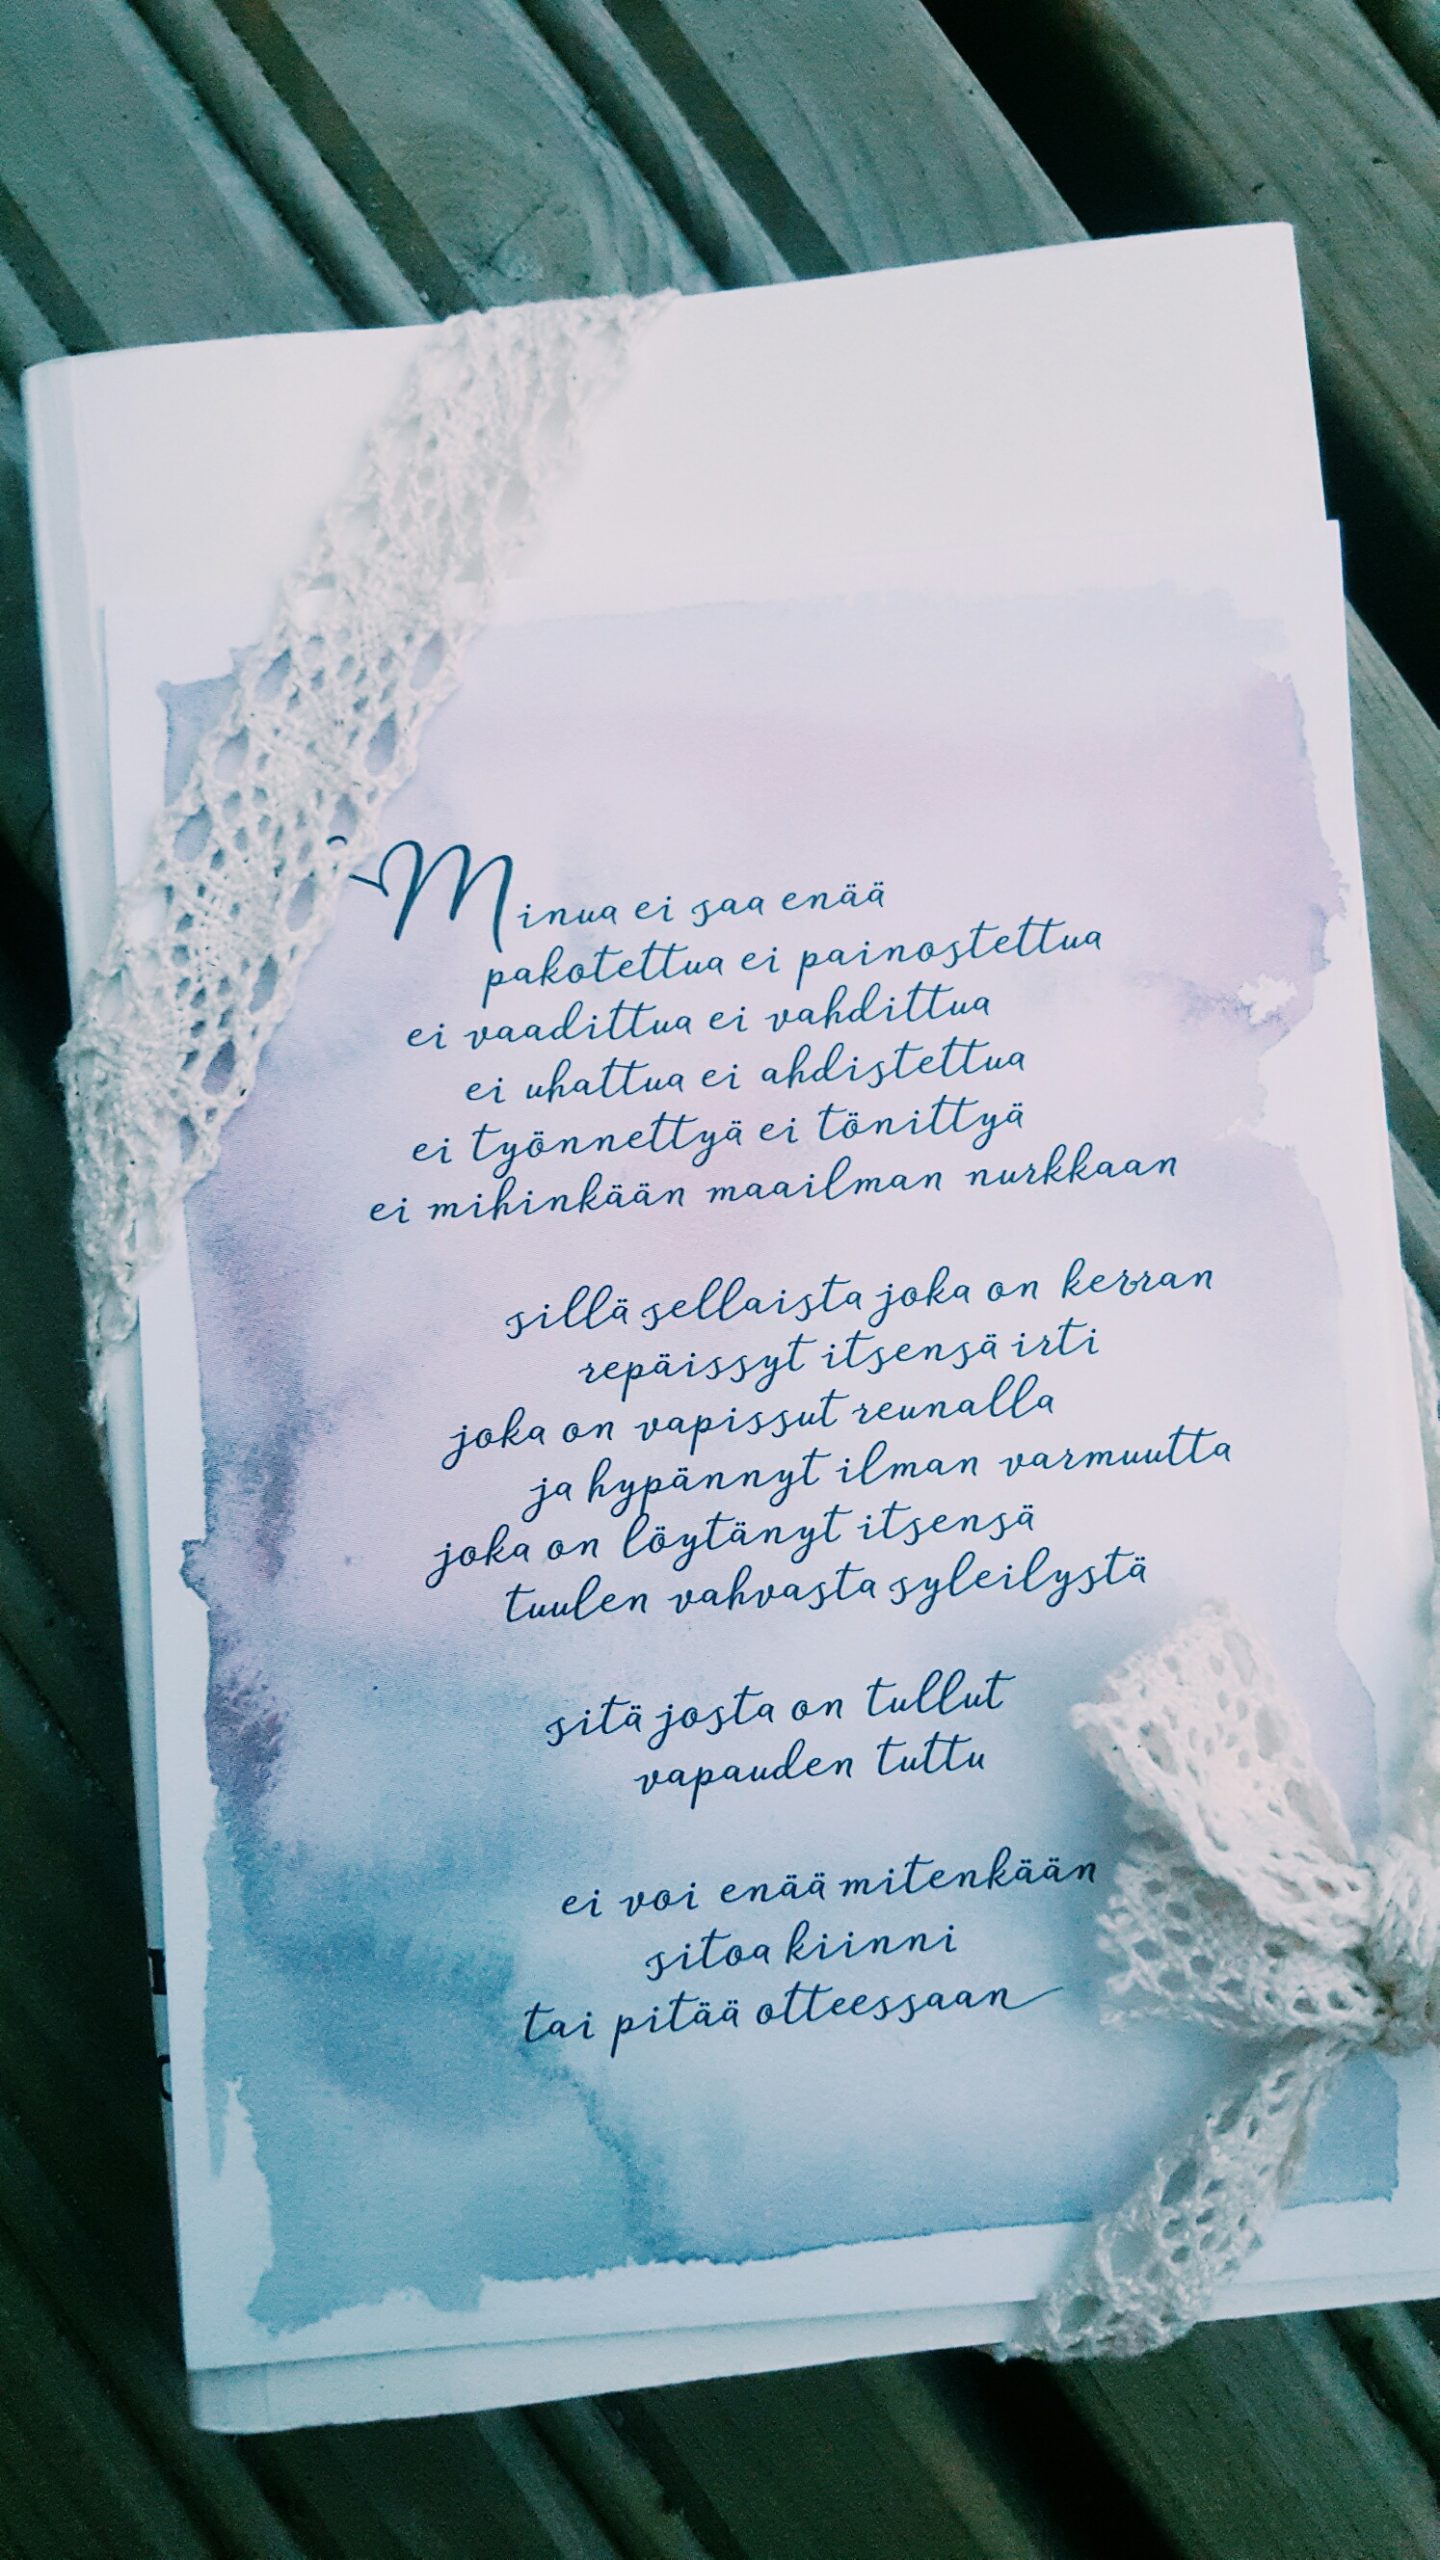 Minua ei saa enää
pakotettua ei painostettua
ei vaadittua ei vahdittua
ei uhattua ei ahdistettua
ei työnnettyä ei tönittyä
ei mihinkään maailman nurkkaan
sillä sellaista joka on kerran
repäissyt itsensä irti
joka on vapissut reunalla
ja hypännyt ilman varmuutta
joka on löytänyt itsensä
tuulen vahvasta syleilystä
sitä josta on tullut
vapauden tuttu
ei voi enää mitenkään
sitoa kiinni
tai pitää otteessaan